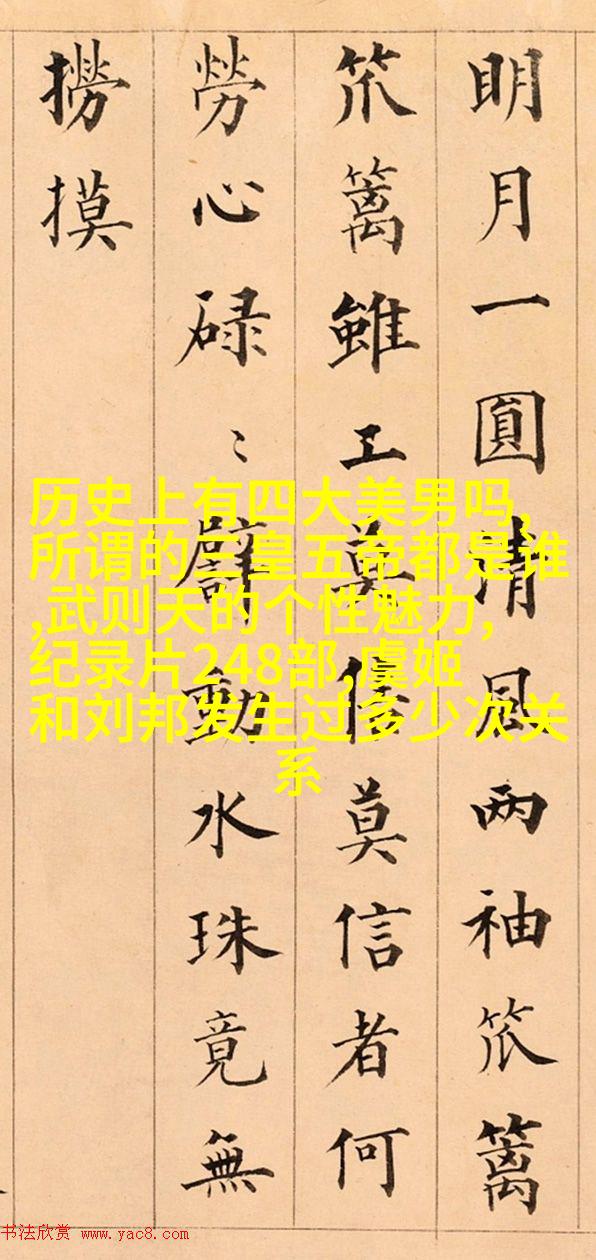 明月一圓清風两袖笊篱
笊篱雖工莫信莫信者何
勞心碌〻動水珠竟無
撈摸
历史上有四大美男吗,
所谓的三皇五帝都是谁
,武则天的个性魅力,
纪录片248部,虞姬
和刘邦发生过多少次关
系
书法欣赏 www.yac8.com